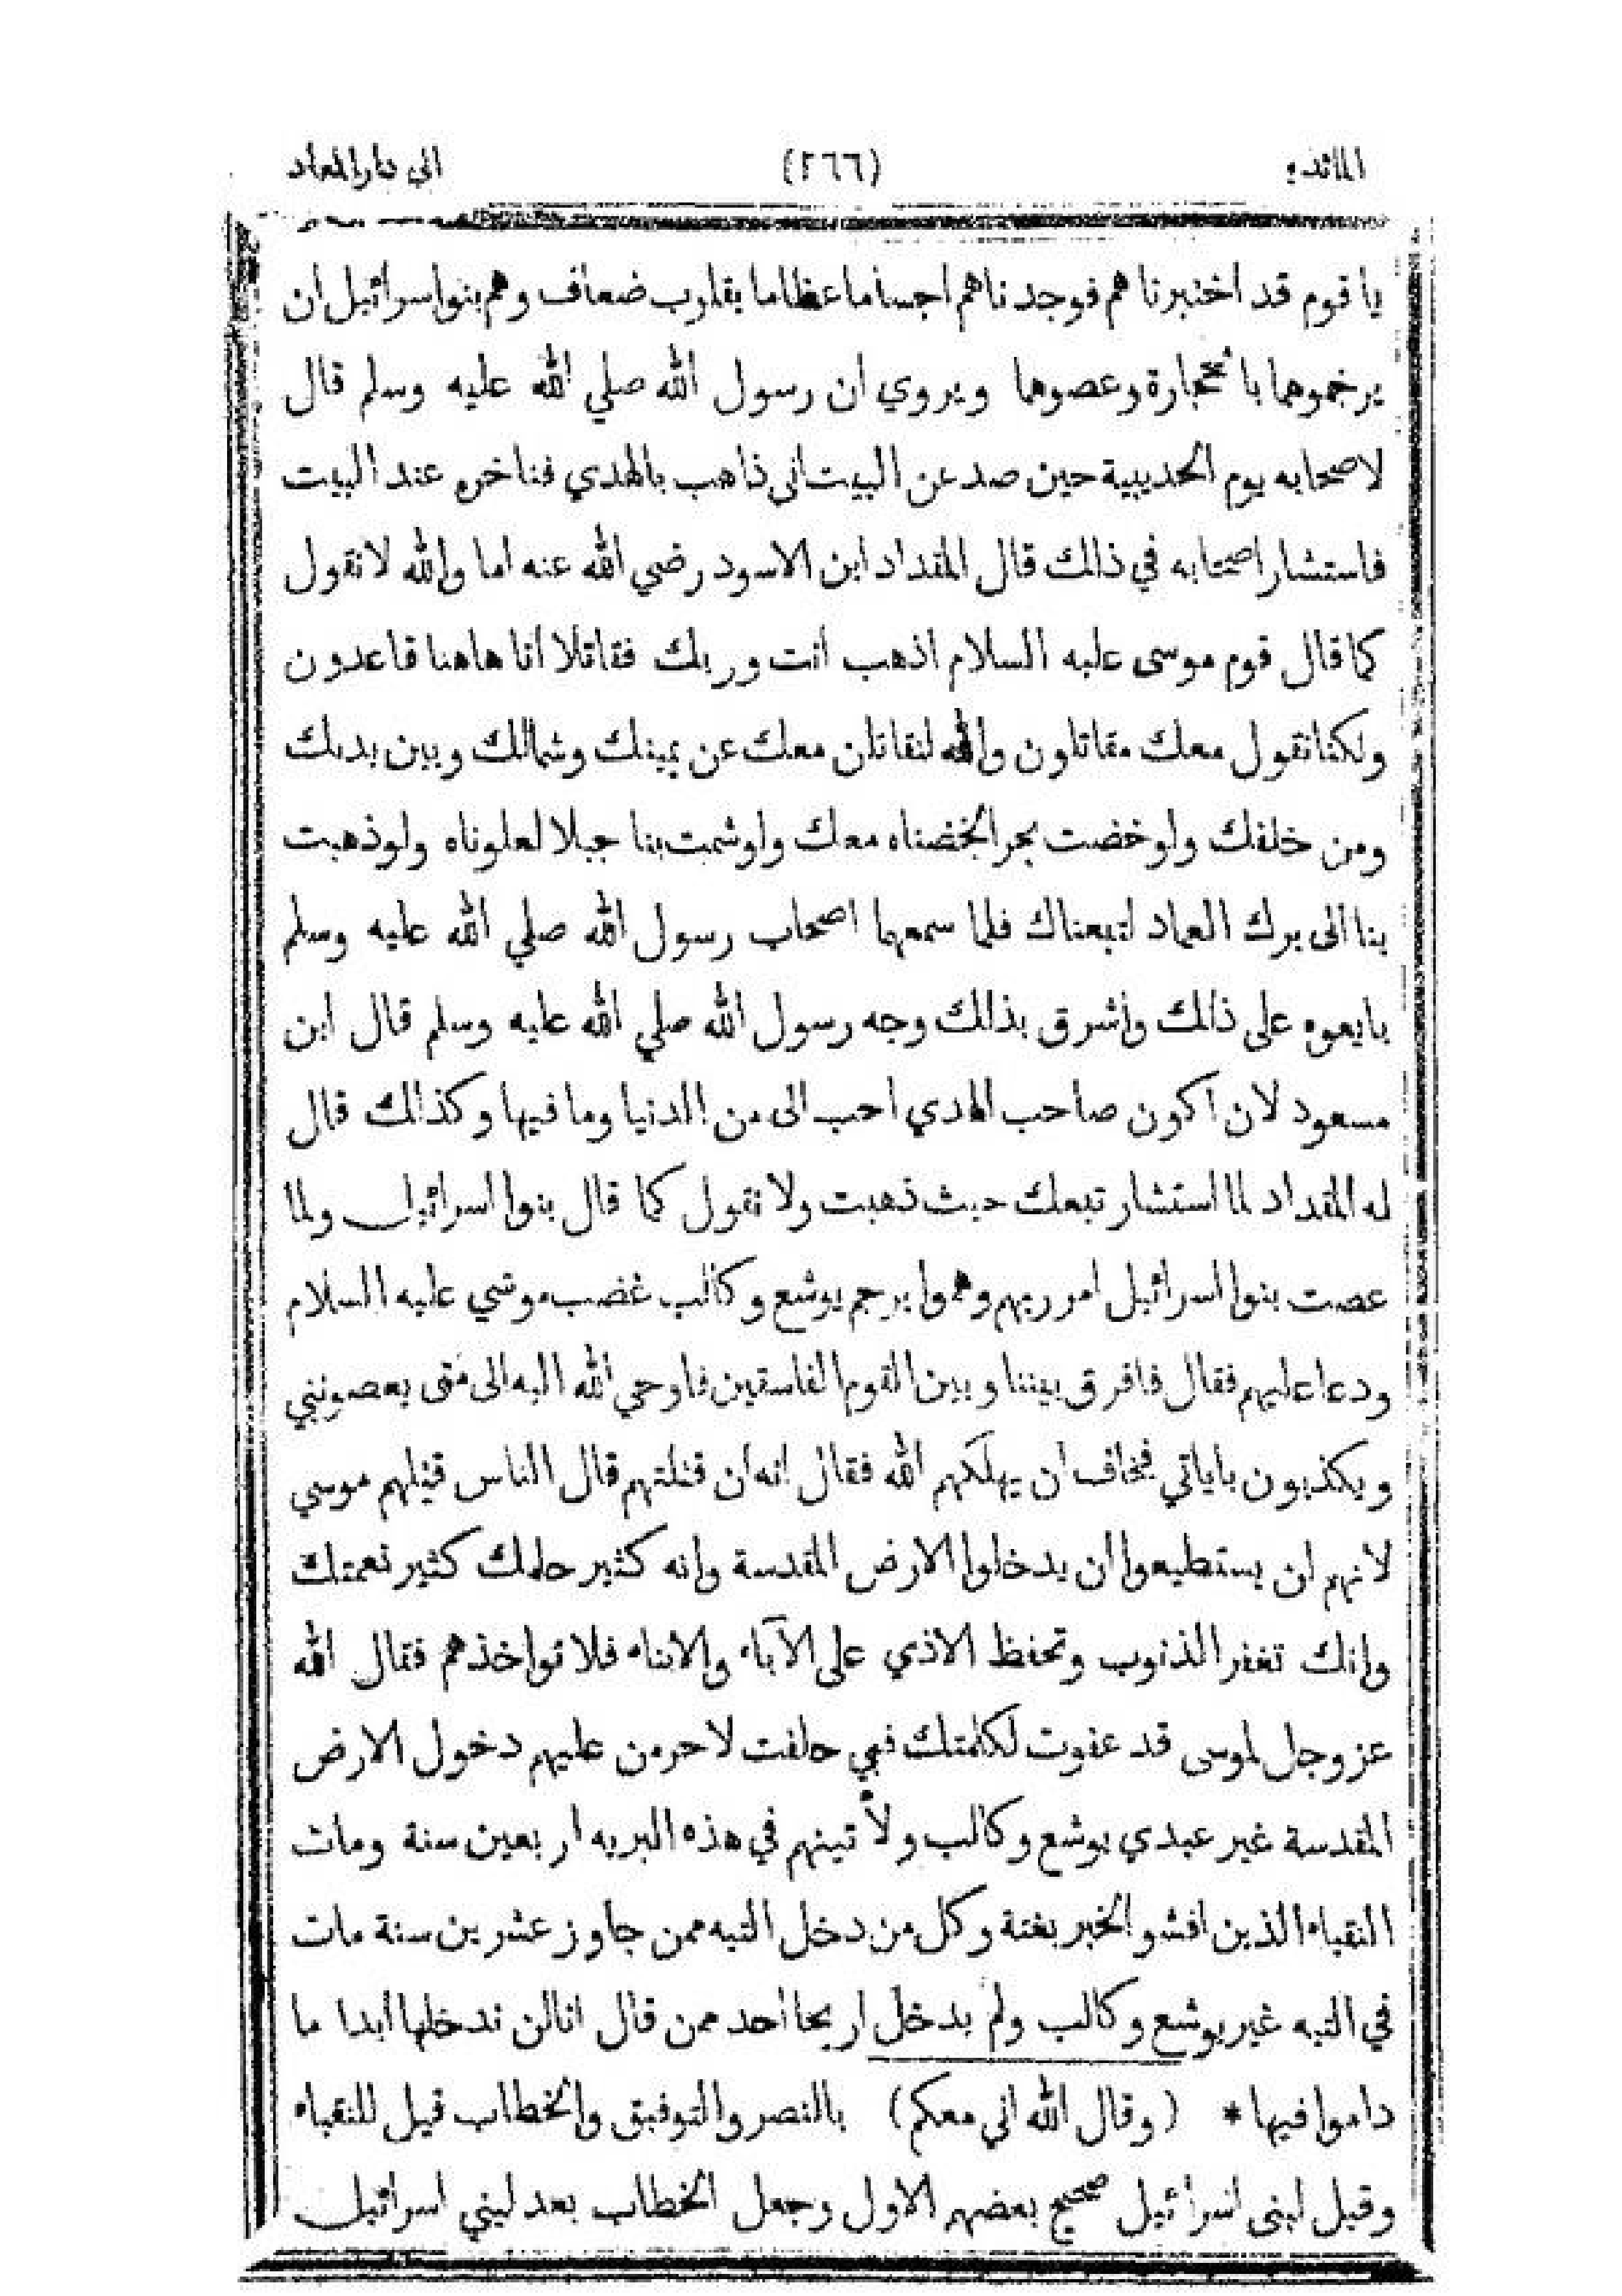 المائدة (٢٦٦) الى دار المعاد
يا قوم قد اختبرنا هم فوجدناهم اجساما عظاما بقلوب ضعاف وهم بنوا سرائيل ان
يرجموهما بالحجارة وعصوهما ويروي ان رسول الله صلي الله عليه وسلم قال
لاصحابه يوم الحديبية حين صد عن البيت اني ذاهب بالهدي فناخره عند البيت
فاستشار اصحابه في ذالك قال المقداد ابن الاسود رضي الله عنه اما والله لا نقول
كما قال قوم موسى عليه السلام اذهب أنت وربك فقاتلا انا هاهنا قاعدون
ولكنا نقول معك مقاتلون والله لنقاتلن معك عن يمينك وشمالك وبين يديك
ومن خلفك ولو خضت بحرا لخضناه معك ولو شمت بنا جبلا لعلوناه ولو ذهبت
بنا الى برك العماد لتبعناك فلما سمعها اصحاب رسول الله صلي الله عليه وسلم
بايعوه على ذالك وأشرق بذلك وجه رسول الله صلي الله عليه وسلم قال ابن
مسعود لان اكون صاحب الهدي احب الى من الدنيا وما فيها وكذالك قال
له المقداد لما استشار تبعك حيث ذهبت ولا نقول كما قال بنوا اسرائيل ولما
عصت بنوا اسرائيل امر ربهم وهموا برجم يوشع وكالب غضب موسي عليه السلام
ودعا عليهم فقال فافرق بيننا وبين القوم الفاسقين فاوحي الله اليه الى متى يعصونني
ويكذبون باياتي فخاف ان يهلكهم الله فقال انه ان قتلتهم قال الناس قتلهم موسي
لأنهم لن يستطيعوا ان يدخلوا الارض المقدسة وانه كثير حلمك كثير نعمتك
وانك تغفر الذنوب وتحفظ الاذي على الآباء والابناء فلا تواخذهم فقال الله
عز وجل لموسى قد عفوت لكلمتك فبي حلفت لاحرمن عليهم دخول الارض
المقدسة غير عبدي يوشع وكالب ولأتينهم في هذه البريه اربعين سنة ومات
النقباء الذين افشو الخبر بغتة وكل من دخل التيه ممن جاوز عشرين سنة مات
في التيه غير يوشع وكالب ولم يدخل اريحا احد ممن قال انا لن ندخلها ابدا ما
داموا فيها * (وقال الله اني معكم) بالنصر والتوفيق والخطاب قيل للنقباء
وقيل لبنى اسرائيل صحيح بعضهم الاول وجعل الخطاب بعد لبني اسرائيل